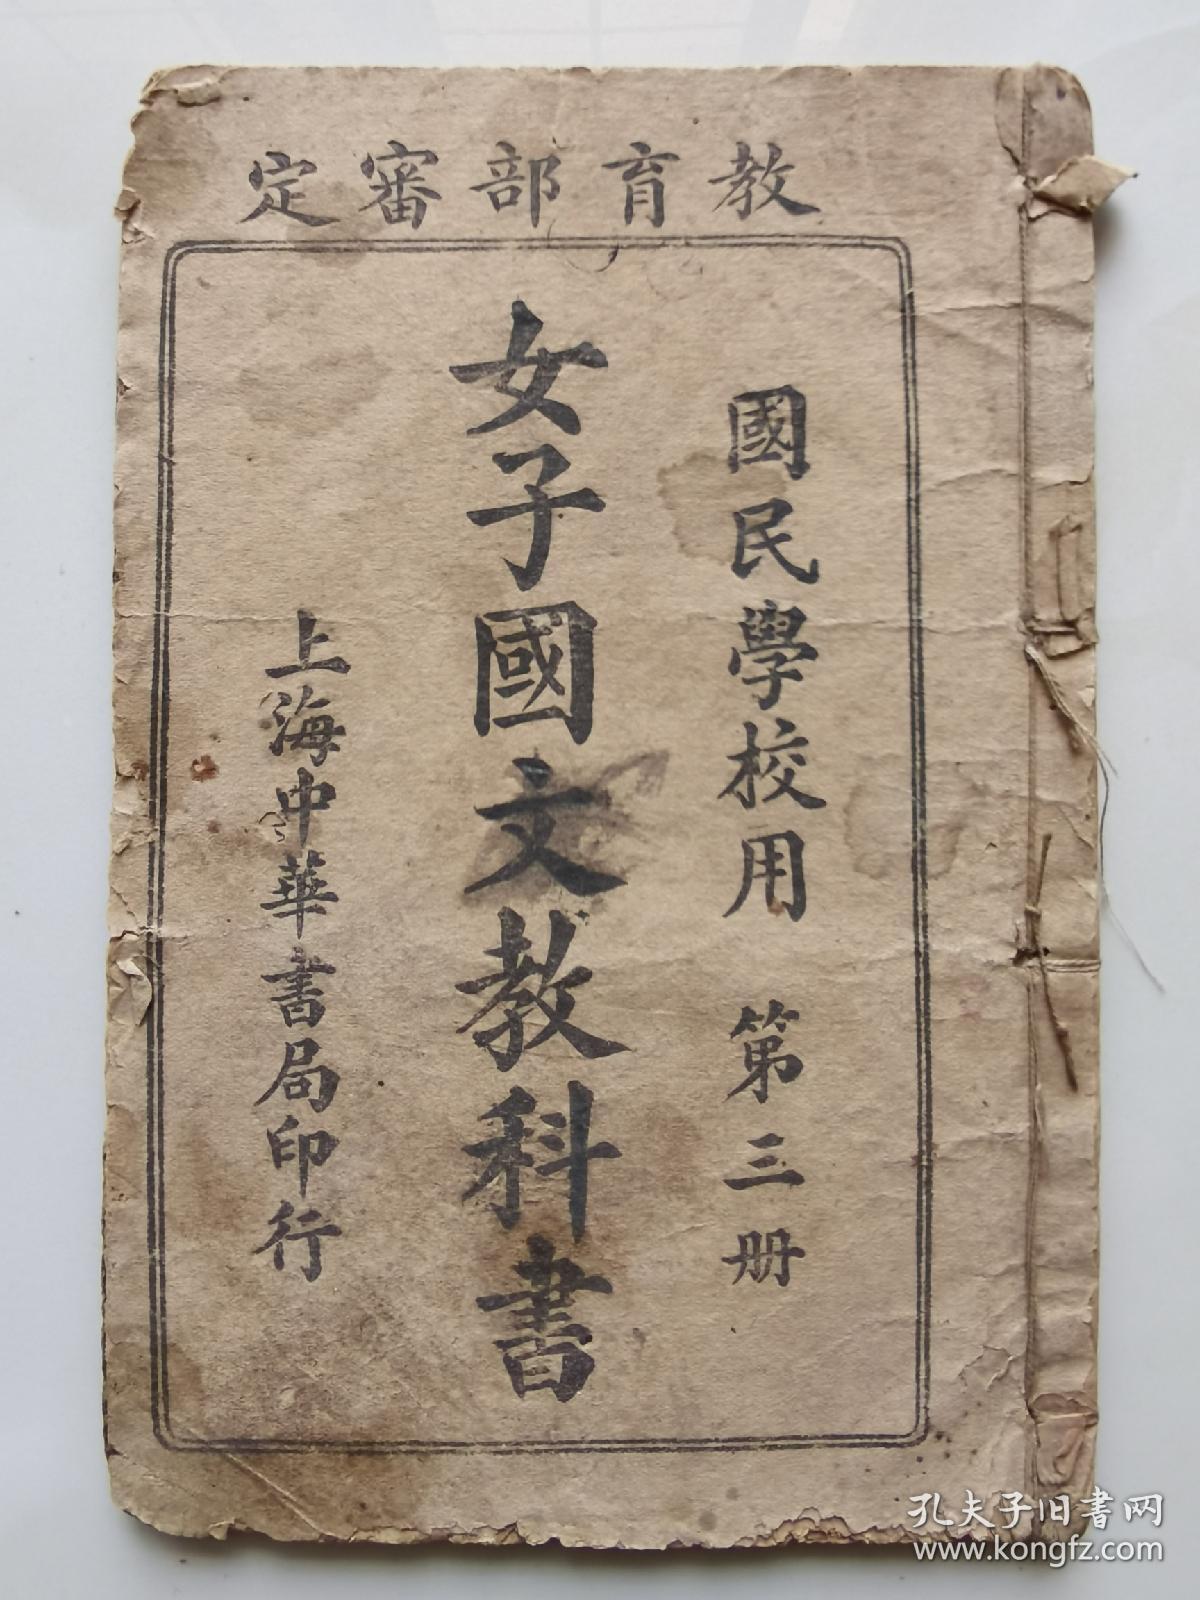 教育部審定
國民學校用 第三册
女子國文教科書
上海中華書局印行
孔夫子旧书网
www.kongfz.com